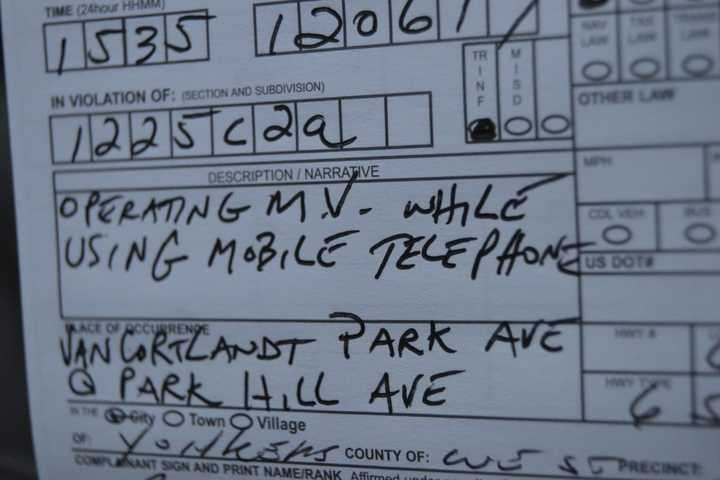 TIME (24hour HHMM)
1535 12061
IN VIOLATION OF: (SECTION AND SUBDIVISION)
1225c2a
TR INF
MISD
NAV LAW
TAX LAW
OTHER LAW
DESCRIPTION / NARRATIVE
MPH
OPERATING M.V. WHILE
USING MOBILE TELEPHONE
CDL VEH
BUS
US DOT#
PLACE OF OCCURRENCE
VAN CORTLANDT PARK AVE
@ PARK HILL AVE
HWY #
HWY TYPE
6
IN THE City Town Village
OF: YONKERS COUNTY OF: WEST PRECINCT:
COMPLAINANT SIGN AND PRINT NAME/RANK Affirmed